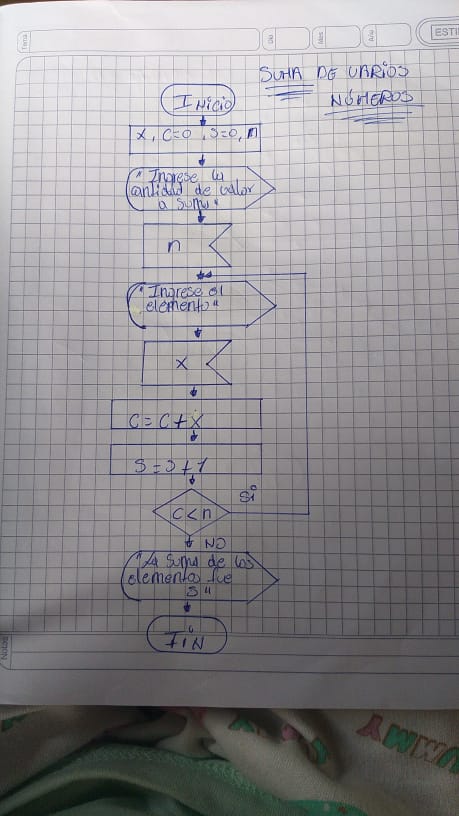 Tema
Día
Mes
Año
ESTI
SUMA DE VARIOS
NÚMEROS
INICIO
X, C=0, S=0, n
"Ingrese la
cantidad de valor
a suma"
n
"Ingrese el
elemento"
X
C = C + X
S = S + 1
C < n
Si
NO
"La suma de los
elementos fue
S"
FIN
Notas